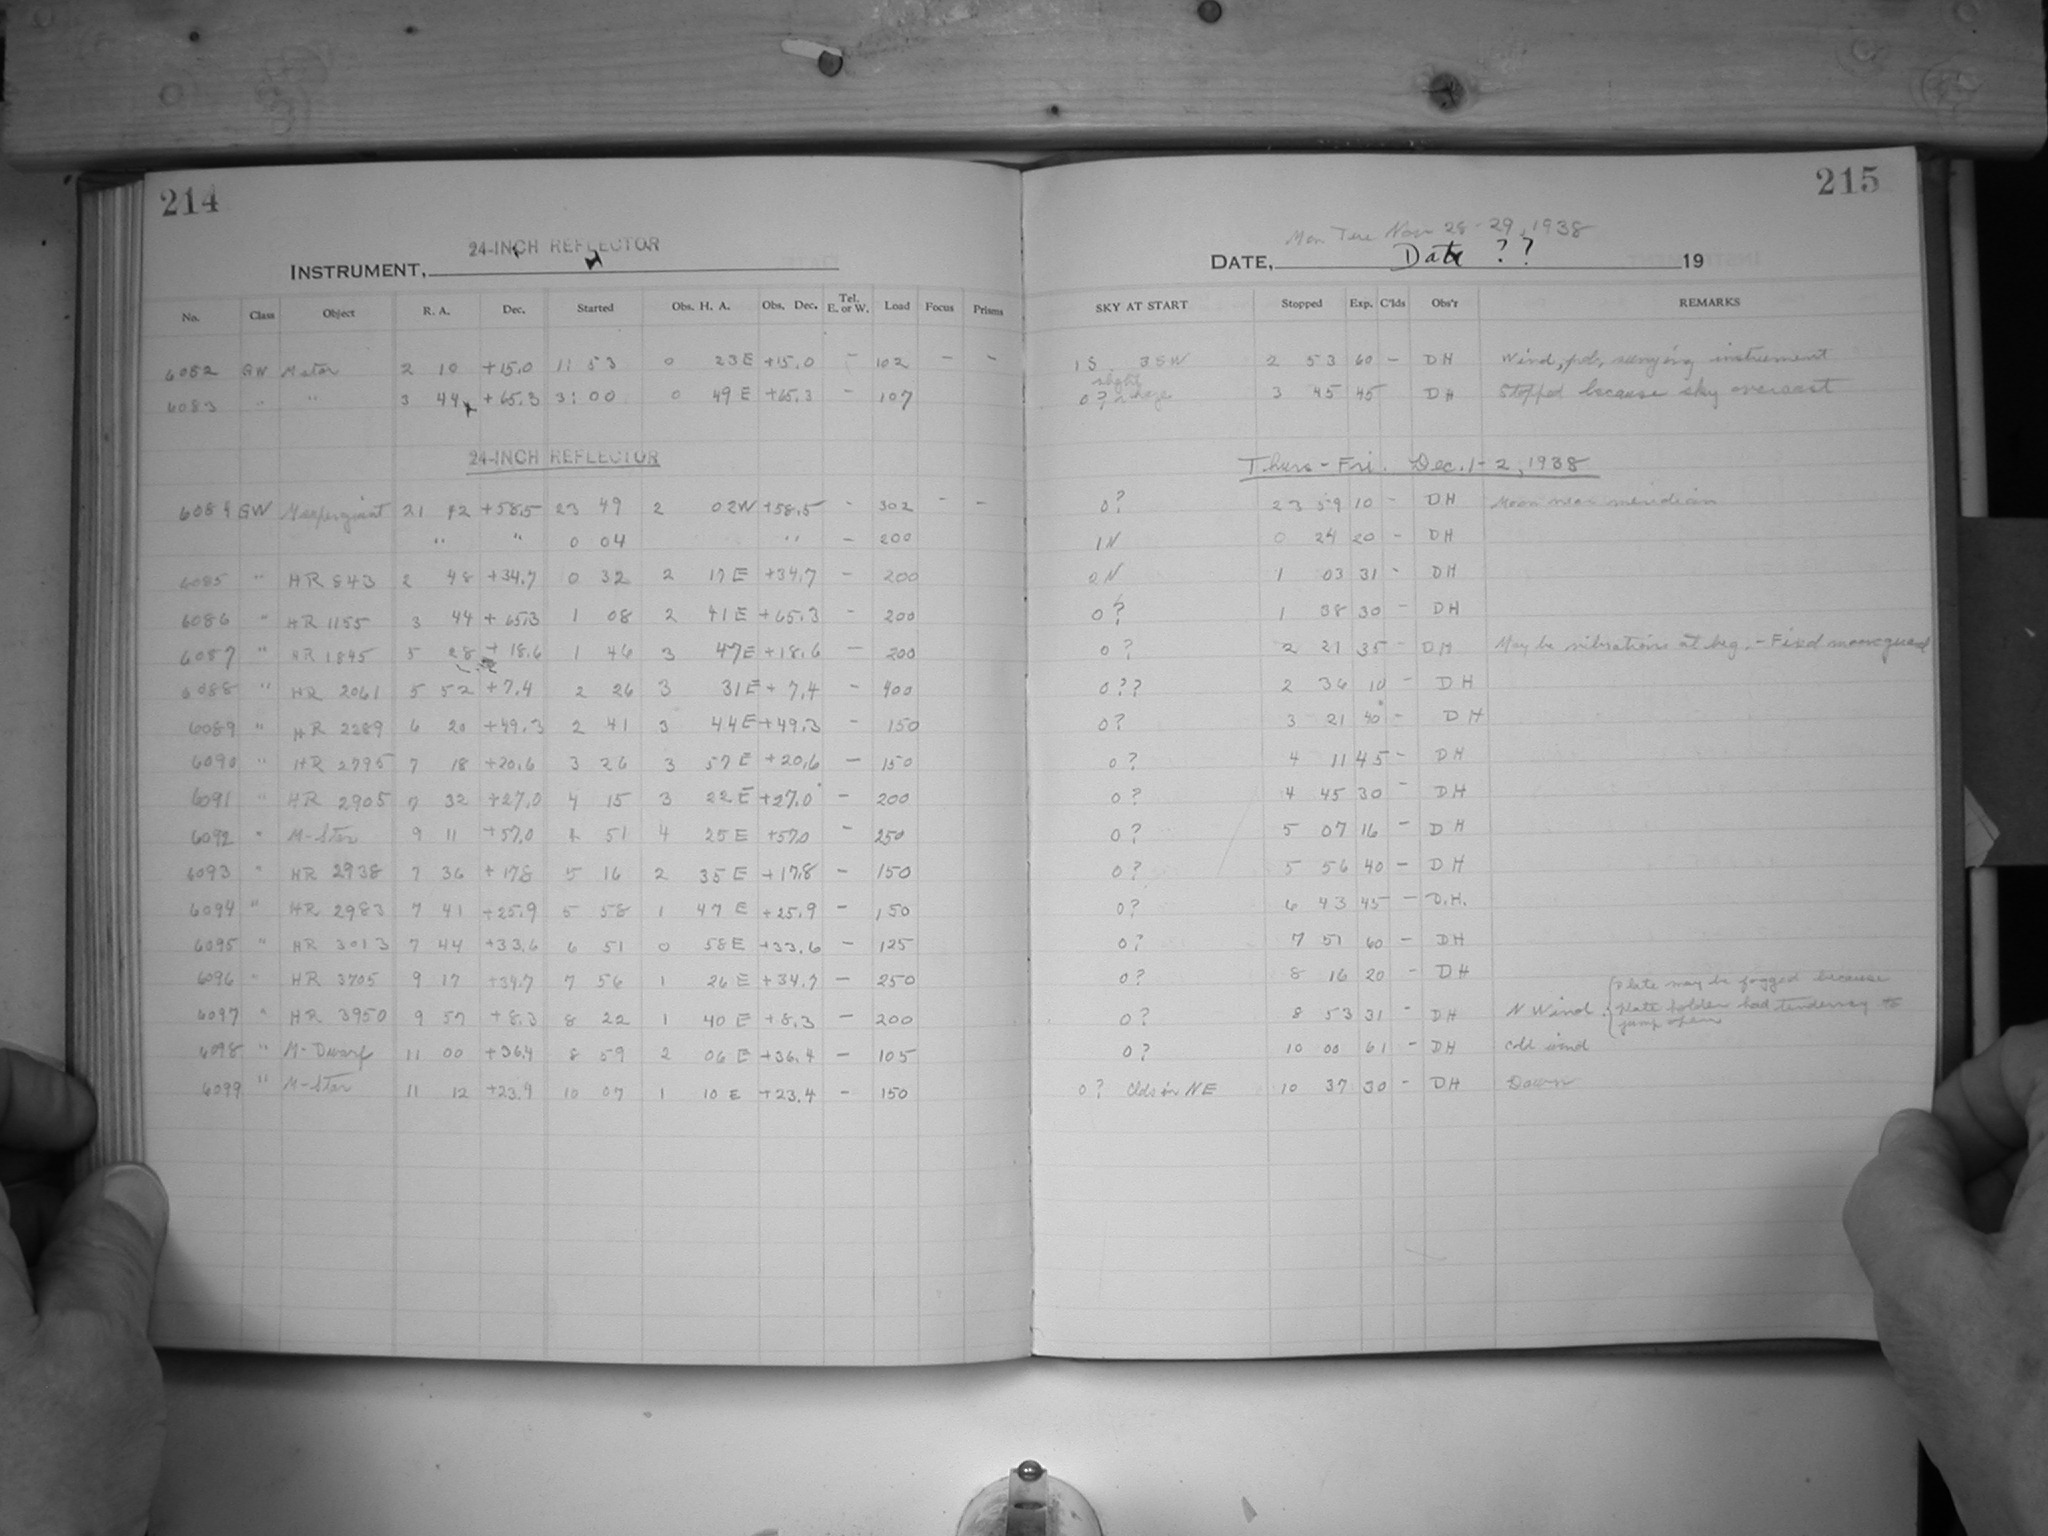 214
24-INCH REFLECTOR
INSTRUMENT,
No. Class Object R. A. Dec. Started Obs. H. A. Obs. Dec. Tel. E. or W. Load Focus Prisms
6082 GW M star 2 10 +15.0 11 53 0 23 E +15.0 - 102 - -
6083 " " 3 44 +65.3 3:00 0 49 E +65.3 - 107
24-INCH REFLECTOR
6084 GW M supergiant 21 42 +58.5 23 49 2 02 W +58.5 - 302 - -
" " 0 04 " - 200
6085 " HR 843 2 48 +34.7 0 32 2 17 E +34.7 - 200
6086 " HR 1155 3 44 +65.3 1 08 2 41 E +65.3 - 200
6087 " HR 1845 5 28 +18.6 1 46 3 47 E +18.6 - 200
6088 " HR 2061 5 52 +7.4 2 26 3 31 E +7.4 - 400
6089 " HR 2289 6 20 +49.3 2 41 3 44 E +49.3 - 150
6090 " HR 2795 7 18 +20.6 3 26 3 57 E +20.6 - 150
6091 " HR 2905 7 32 +27.0 4 15 3 22 E +27.0 - 200
6092 " M-Star 9 11 +57.0 4 51 4 25 E +57.0 - 250
6093 " HR 2938 7 36 +17.8 5 16 2 35 E +17.8 - 150
6094 " HR 2983 7 41 +25.9 5 58 1 47 E +25.9 - 150
6095 " HR 3013 7 44 +33.6 6 51 0 58 E +33.6 - 125
6096 " HR 3705 9 17 +34.7 7 56 1 26 E +34.7 - 250
6097 " HR 3950 9 57 +8.3 8 22 1 40 E +8.3 - 200
6098 " M-Dwarf 11 00 +36.4 8 59 2 06 E +36.4 - 105
6099 " M-Star 11 12 +23.4 10 07 1 10 E +23.4 - 150
215
Mon Tue Nov 28-29, 1938
DATE, Date ?? 19
SKY AT START Stopped Exp. C'lds Obs'r REMARKS
1 S 3 SW 2 53 60 - DH Wind, instrument
0? slight haze 3 45 45 DH Stopped because sky overcast
Thurs - Fri. Dec. 1-2, 1938
0? 23 59 10 - DH Moon near meridian
1 N 0 24 20 - DH
0 N 1 03 31 - DH
0? 1 38 30 - DH
0? 2 21 35 - DH May be vibrations at beg. - Fixed moonguard
0?? 2 36 10 - DH
0? 3 21 40 - DH
0? 4 11 45 - DH
0? 4 45 30 - DH
0? 5 07 16 - DH
0? 5 56 40 - DH
0? 6 43 45 - D.H.
0? 7 51 60 - DH
0? 8 16 20 - DH
0? 8 53 31 - DH N Wind. {Plate may be fogged because
plate holder had tendency to
jump open
0? 10 00 61 - DH Cold wind
0? Clds in NE 10 37 30 - DH Dawn